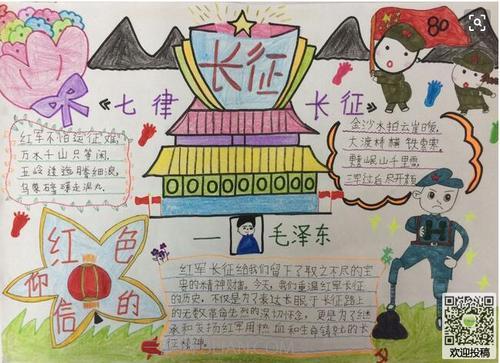 长征
80
《七律 长征》
红军不怕远征难,
万水千山只等闲,
五岭逶迤腾细浪,
乌蒙磅礴走泥丸。
金沙水拍云崖暖,
大渡桥横铁索寒
更喜岷山千里雪,
三军过后尽开颜
— 毛泽东
红色
信仰的
红军长征给我们留下了取之不尽的宝
贵的精神财富。今天,我们重温红军长征
的历史,不仅是为了表达长眠于长征路上
的无数革命先烈的深切怀念,更是为了继
承和发扬红军用热血和生命铸就的长
征精神。
欢迎投稿